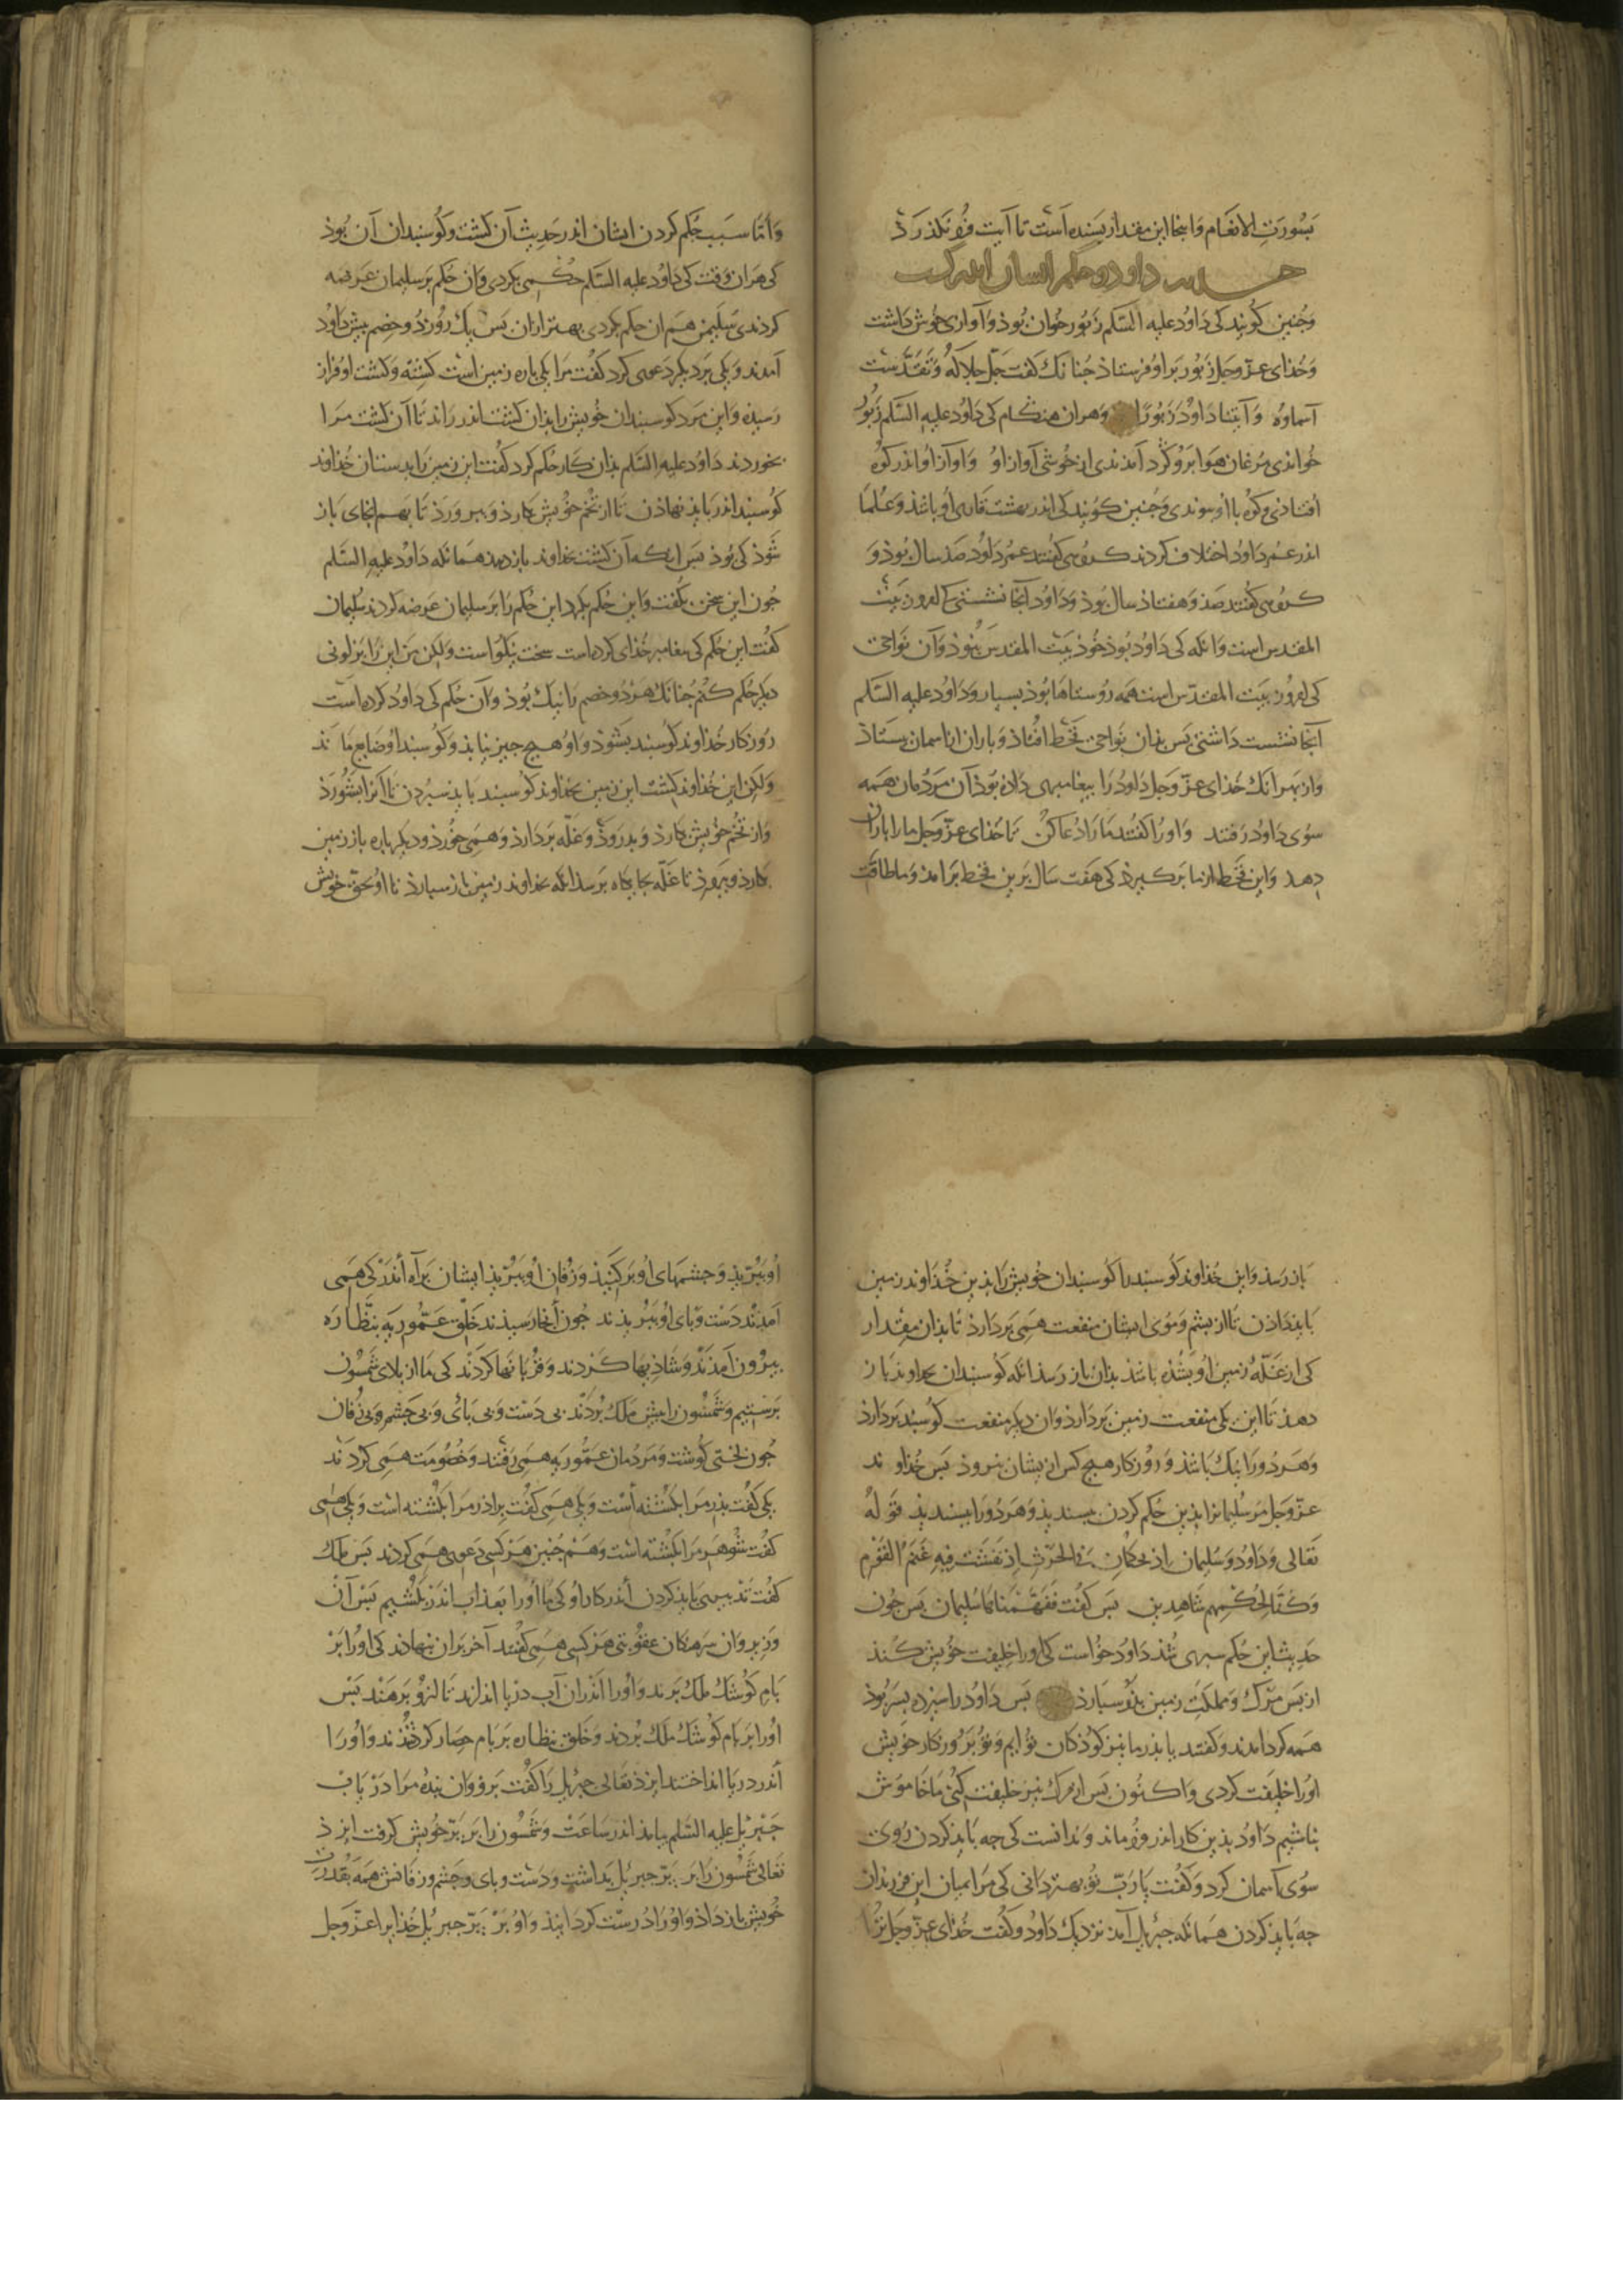 بسورت الانعام وانجا این مقدار بسنده است تا آیت فرو نگذرد
حدیث داود و حکم ایشان اندر کشت
وجنین کویند کی داود علیه السلم زبور خوان بوذ و آوازی خوش داشت
وخذای عز وجل زبور بر او فرستاذ جنانک کفت جل جلاله وتقدست
آسماوه وآتینا داوود زبورا وهران هنکام کی داود علیه السلم زبور
خواندی مرغان هوا بر و کرد آمدندی از خوشی آواز او واواز او اندر کوه
افتاذی وکوه با او وجنین کویند کی اندر بهشت او باشذ وعلما
اندر عمر داود اختلاف کردند کروهی کفتند عمر داود صد سال بوذ و
کروهی کفتند صد وهفتاذ سال بوذ وداود آنجا نشستی کامرون بیت
المقدس است وانکه کی داود بوذ خوذ بیت المقدس نبوذ وآن نواحی
کی امروز بیت المقدس است همه روستاها بوذ بسیار وداود علیه السلم
آنجا نشست داشتی پس بذان نواحی قحط افتاذ وباران از اسمان بستاذ
واز بهر انک خذای عز وجل داود را بیغامبری داده بوذ آن مردمان همه
سوی داود رفتند واورا کفتند مارا دعا کن تا خذای عز وجل مارا باران
دهد واین قحط از ما برکیرذ کی هفت سال برین قحط برامذ وما طاقت
واما سبب حکم کردن ایشان اندر حدیث آن کشت وکوسبندان آن بوذ
کی هران وقت کی داود علیه السلم حکمی بکردی وان حکم بر سلیمان عرضه
کردندی سلیمن هم ان حکم بکردی بهتر ازان بس یک روز دو خصم بیش داود
آمدند ویکی بر دیکر دعوی کرد کفت مرا یکی باره زمین است کشته وکشت او فراز
رسیذه واین مرد کوسبندان خویش را بذان کشت اندر راند تا آن کشت مرا
بخوردند داود علیه السلم بذان کار حکم کرد کفت این زمین را بدستان خداوند
کوسبند اندر بایذ نهاذن تا از تخم خویش بکارذ وببرورذ تا بهم انجای باز
شوذ کی بوذ بس انکه آن کشت بخداوند باز دهد همانکه داود علیه السلم
جون این سخن بکفت واین حکم بکرد این حکم را بر سلیمان عرضه کردند سلیمان
کفت این حکم کی بیغامبر خذای کرده است سخت نیکو است ولکن من این را بر لونی
دیکر حکم کنم جنانک هر دو خصم را نیک بوذ وآن حکم کی داود کرده است
روزکار خداوند کوسبند بشوذ واو هیج جیز نیابذ وکوسبند او ضایع ماند
ولکن این خذاوند کشت این زمین بخذاوند کوسبند بایذ سبردن تا آنرا بشورذ
واز تخم خویش بکارذ وبدروذ وغله بردارذ وهمی خورذ ودیکر باره باز زمین
بکارذ وببروز تا غله بجایکاه برسد انکه بخداوند زمین باز سبارذ تا او بحق خویش
باز رسذ واین خذاوند کوسبند را کوسبندان خویش را بذین خذاوند زمین
بایذ داذن تا از بشم وموی ایشان منفعت همی بردارذ تا بذان مقدار
کی از غله زمین او بشذه باشذ بذان باز رسذ انکه کوسبندان بخداوند باز
دهذ تا این یکی منفعت زمین بردارذ وان دیکر منفعت کوسبند بردارذ
وهر دو را نیک باشذ وروزکار هیج کس از یشان نروذ بس خذاوند
عز وجل مر سلیمانرا بذین حکم کردن ببسندیذ وهر دو را ببسندیذ قوله
تعالی وداود وسلیمان اذ یحکمان فی الحرث اذ نفشت فیه غنم القوم
وکنا لحکمهم شاهدین بس کفت ففهمناها سلیمان بس جون
حدیث این حکم سبری شذ داود خواست کی اورا خلیفت خویش کنذ
از بس مرک ومملکت زمین بذو سبارذ بس داود را سیزده بسر بوذ
همه کرد امدند وکفتند یا بذر ما نیز کوذکان تو ایم وتو بر روزکار خویش
اورا خلیفت کردی واکنون بس از مرک نیز خلیفت کنی ما خاموش
نباشیم داود بذین کار اندر فرو ماند وندانست کی جه بایذ کردن روی
سوی آسمان کرد وکفت یا رب تو بهتر دانی کی مرا میان این فرزندان
جه بایذ کردن همانکه جبریل آمد نزدیک داود وکفت خذای عز وجل ترا
او ببریذ وجشمهای او برکنیذ وزفان او ببریذ ایشان براه أندر کی همی
آمدند دست وبای او ببریذند جون آنجا رسیذند خلق عموریه بنظاره
بیرون آمدند وشاذیها کردند وقربانها کردند کی ما از بلای شمسون
برستیم وشمسون را بیش ملک بردند بی دست وبی بای وبی جشم وبی زفان
جون لختی کوشت ومردمان عموریه همی رفتند وخصومت همی کردند
یکی کفت بذر مرا بکشته أست ویکی همی کفت براذر مرا بکشته است ویکی همی
کفت شوهر مرا بکشته است وهم جنین هر کسی دعوی همی کردند بس ملک
کفت تدبیر می بایذ کردن أندر کار او کی ما أورا بعذاب اندر بکشیم بس آن
وزیر وان سرهنکان عقوبتی هر کسی همی کفتند آخر بران بنهاذند کی اورا بر
بام کوشک ملک برند وأورا أندران آب دریا اندازند تا ازو برهند بس
اورا بر بام کوشک ملک بردند وخلق بنظاره بر بام حصار کرد شذند واورا
أندر دریا انداختند ایزذ تعالی جبریل را کفت برو وان بنده مرا دریاب
جبریل علیه السلم بیامذ اندر ساعت وشمسون را بر بر خویش کرفت ایزذ
تعالی شمسون را بر بر جبریل بداشت ودست وبای وجشم وزفانش همه بقدرت
خویش باز داذ واورا درست کردانیذ واو بر بر جبریل خذایرا عز وجل